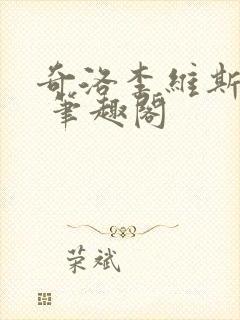 奇洛李維斯
筆趣閣
荣斌